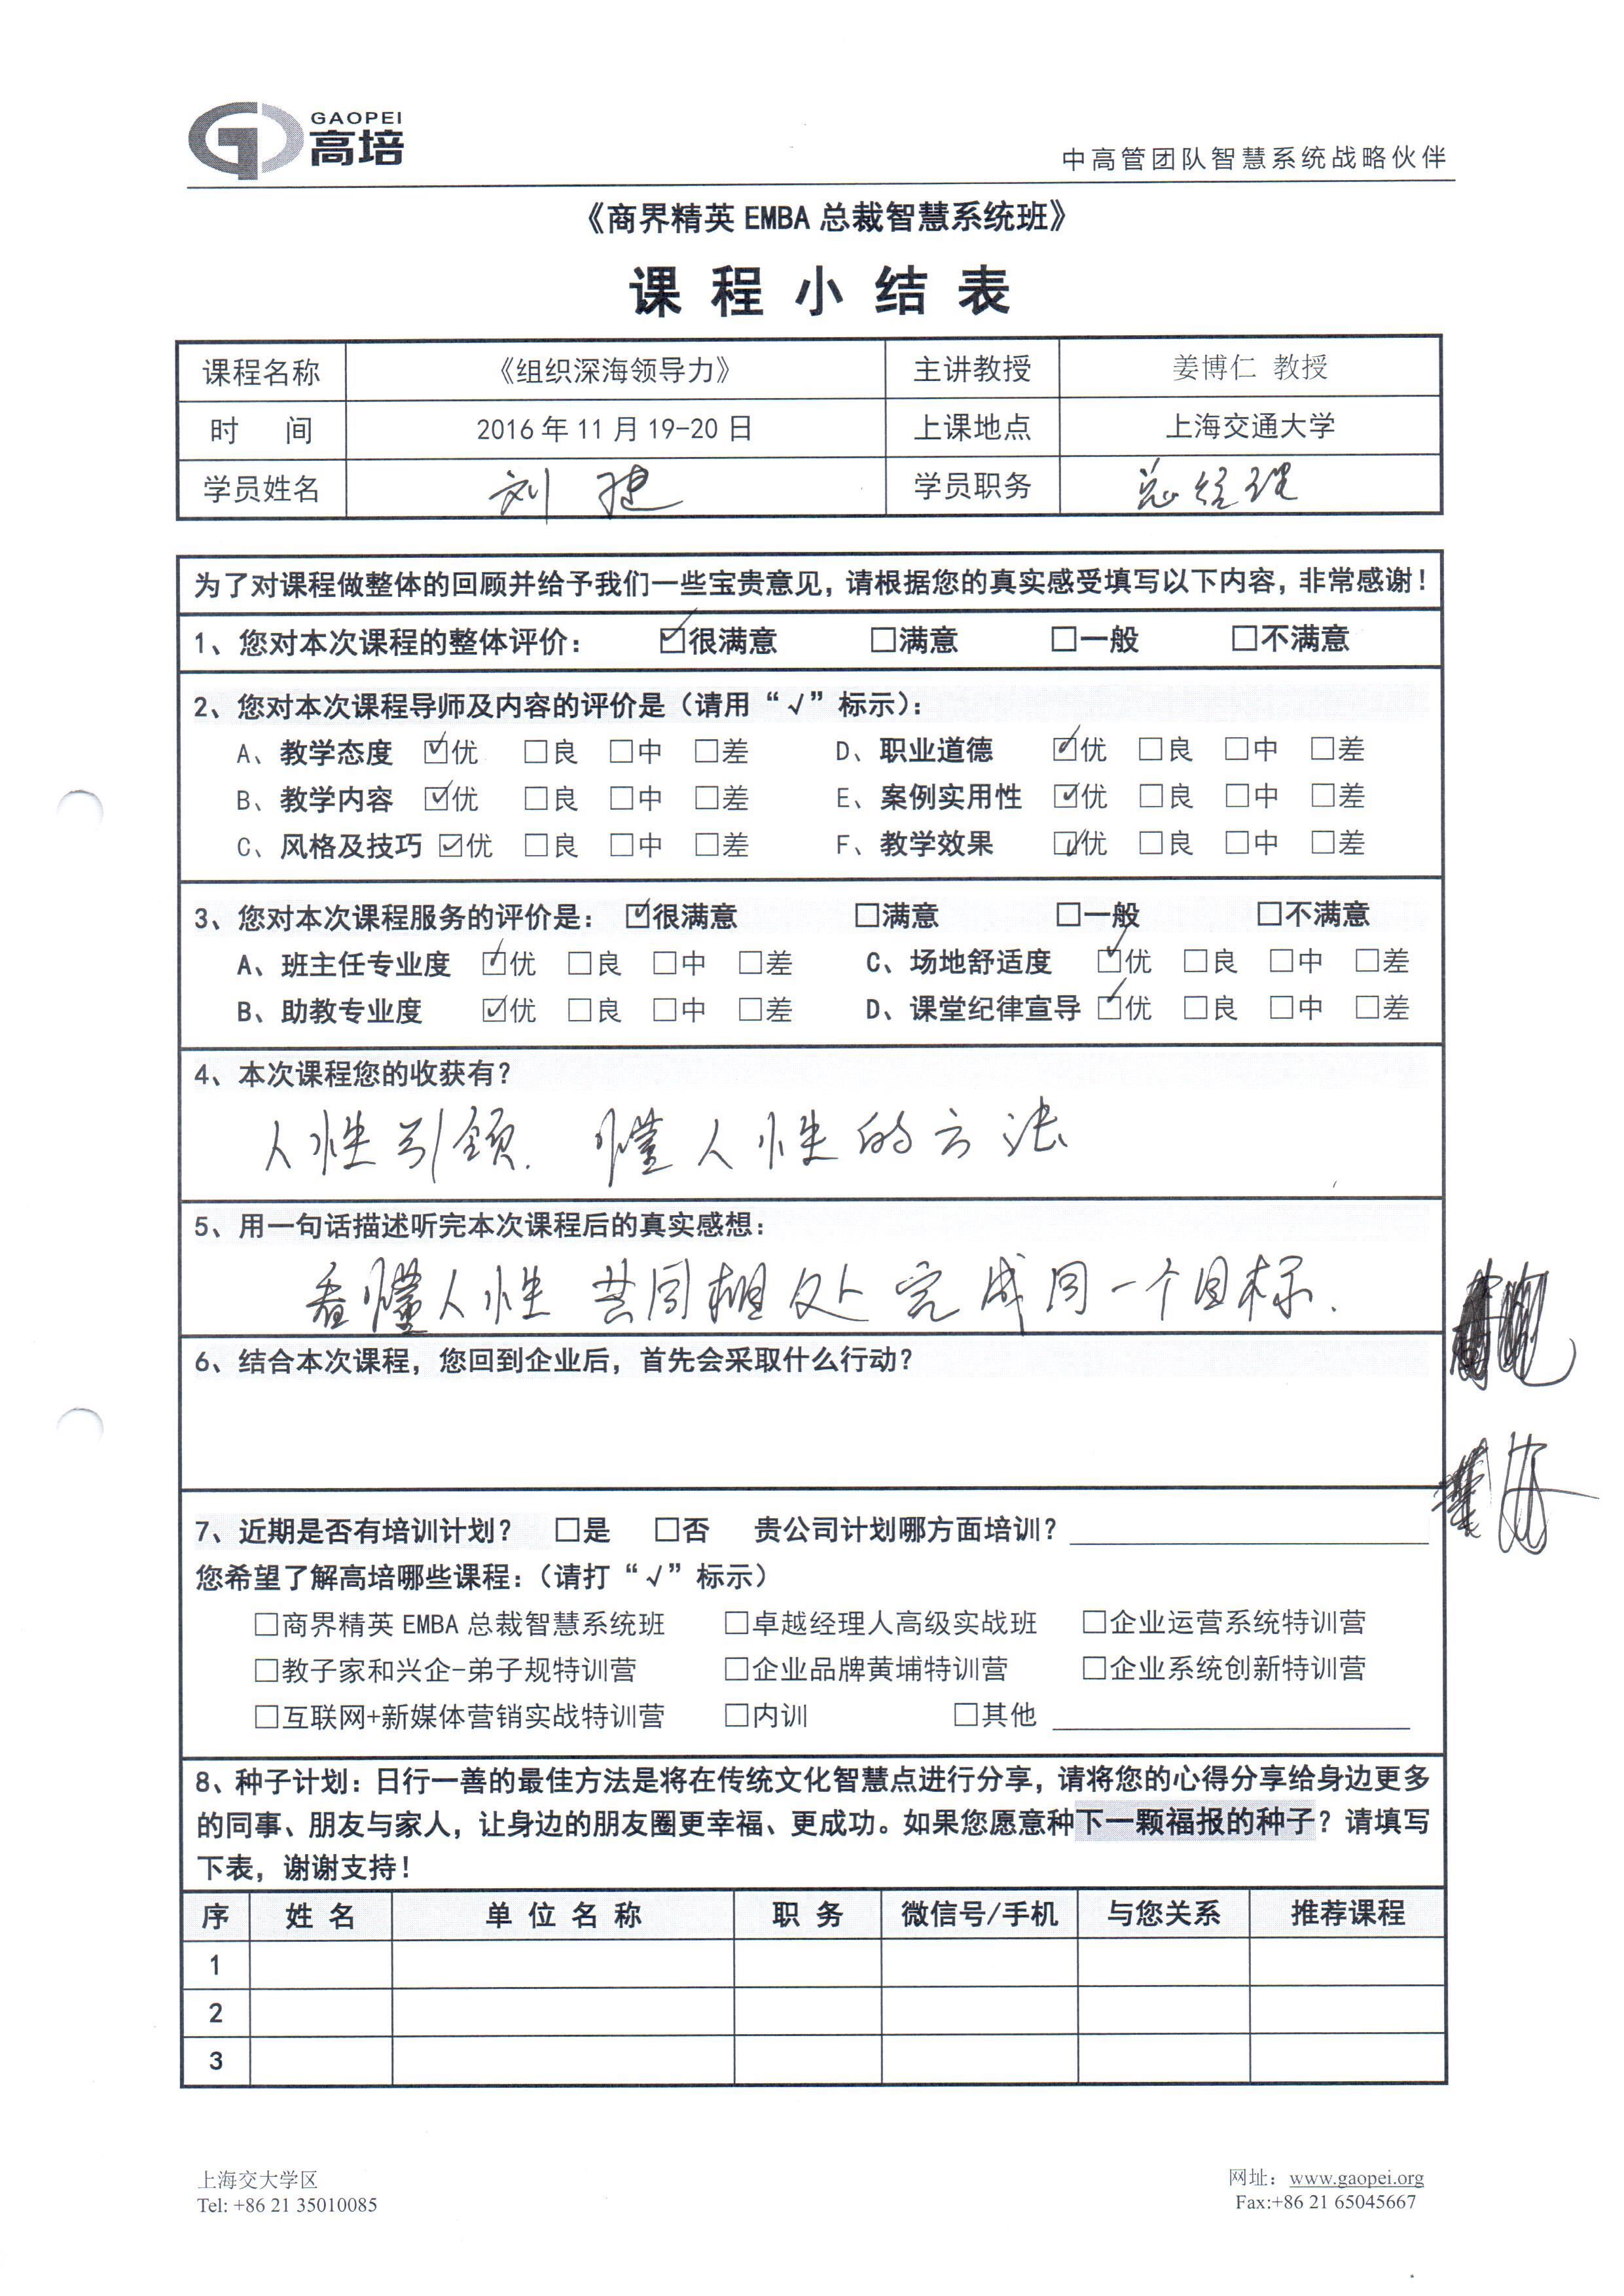 GAOPEI
高培
中高管团队智慧系统战略伙伴
《商界精英 EMBA 总裁智慧系统班》
课 程 小 结 表
课程名称 《组织深海领导力》 主讲教授 姜博仁 教授
时 间 2016 年 11 月 19-20 日 上课地点 上海交通大学
学员姓名 刘 学员职务 总经理
为了对课程做整体的回顾并给予我们一些宝贵意见，请根据您的真实感受填写以下内容，非常感谢！
1、您对本次课程的整体评价： ☑很满意 □满意 □一般 □不满意
2、您对本次课程导师及内容的评价是（请用“√”标示）：
A、教学态度 ☑优 □良 □中 □差 D、职业道德 ☑优 □良 □中 □差
B、教学内容 ☑优 □良 □中 □差 E、案例实用性 ☑优 □良 □中 □差
C、风格及技巧 ☑优 □良 □中 □差 F、教学效果 ☑优 □良 □中 □差
3、您对本次课程服务的评价是： ☑很满意 □满意 □一般 □不满意
A、班主任专业度 ☑优 □良 □中 □差 C、场地舒适度 ☑优 □良 □中 □差
B、助教专业度 ☑优 □良 □中 □差 D、课堂纪律宣导 ☑优 □良 □中 □差
4、本次课程您的收获有？
人性引领. 懂人性的方法
5、用一句话描述听完本次课程后的真实感想：
看懂人性 共同相处 完成同一个目标.
6、结合本次课程，您回到企业后，首先会采取什么行动？
7、近期是否有培训计划？ □是 □否 贵公司计划哪方面培训？
您希望了解高培哪些课程：（请打“√”标示）
□商界精英 EMBA 总裁智慧系统班 □卓越经理人高级实战班 □企业运营系统特训营
□教子家和兴企-弟子规特训营 □企业品牌黄埔特训营 □企业系统创新特训营
□互联网+新媒体营销实战特训营 □内训 □其他
8、种子计划：日行一善的最佳方法是将在传统文化智慧点进行分享，请将您的心得分享给身边更多
的同事、朋友与家人，让身边的朋友圈更幸福、更成功。如果您愿意种下一颗福报的种子？请填写
下表，谢谢支持！
序 姓 名 单 位 名 称 职 务 微信号/手机 与您关系 推荐课程
1
2
3
上海交大学区 网址：www.gaopei.org
Tel: +86 21 35010085 Fax:+86 21 65045667